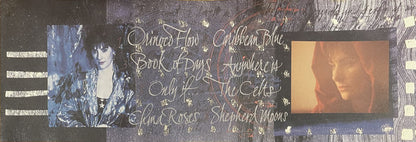 Orinoco Flow
Caribbean Blue
Book of Days
Anywhere is
Only if
The Celts
China Roses
Shepherd Moons